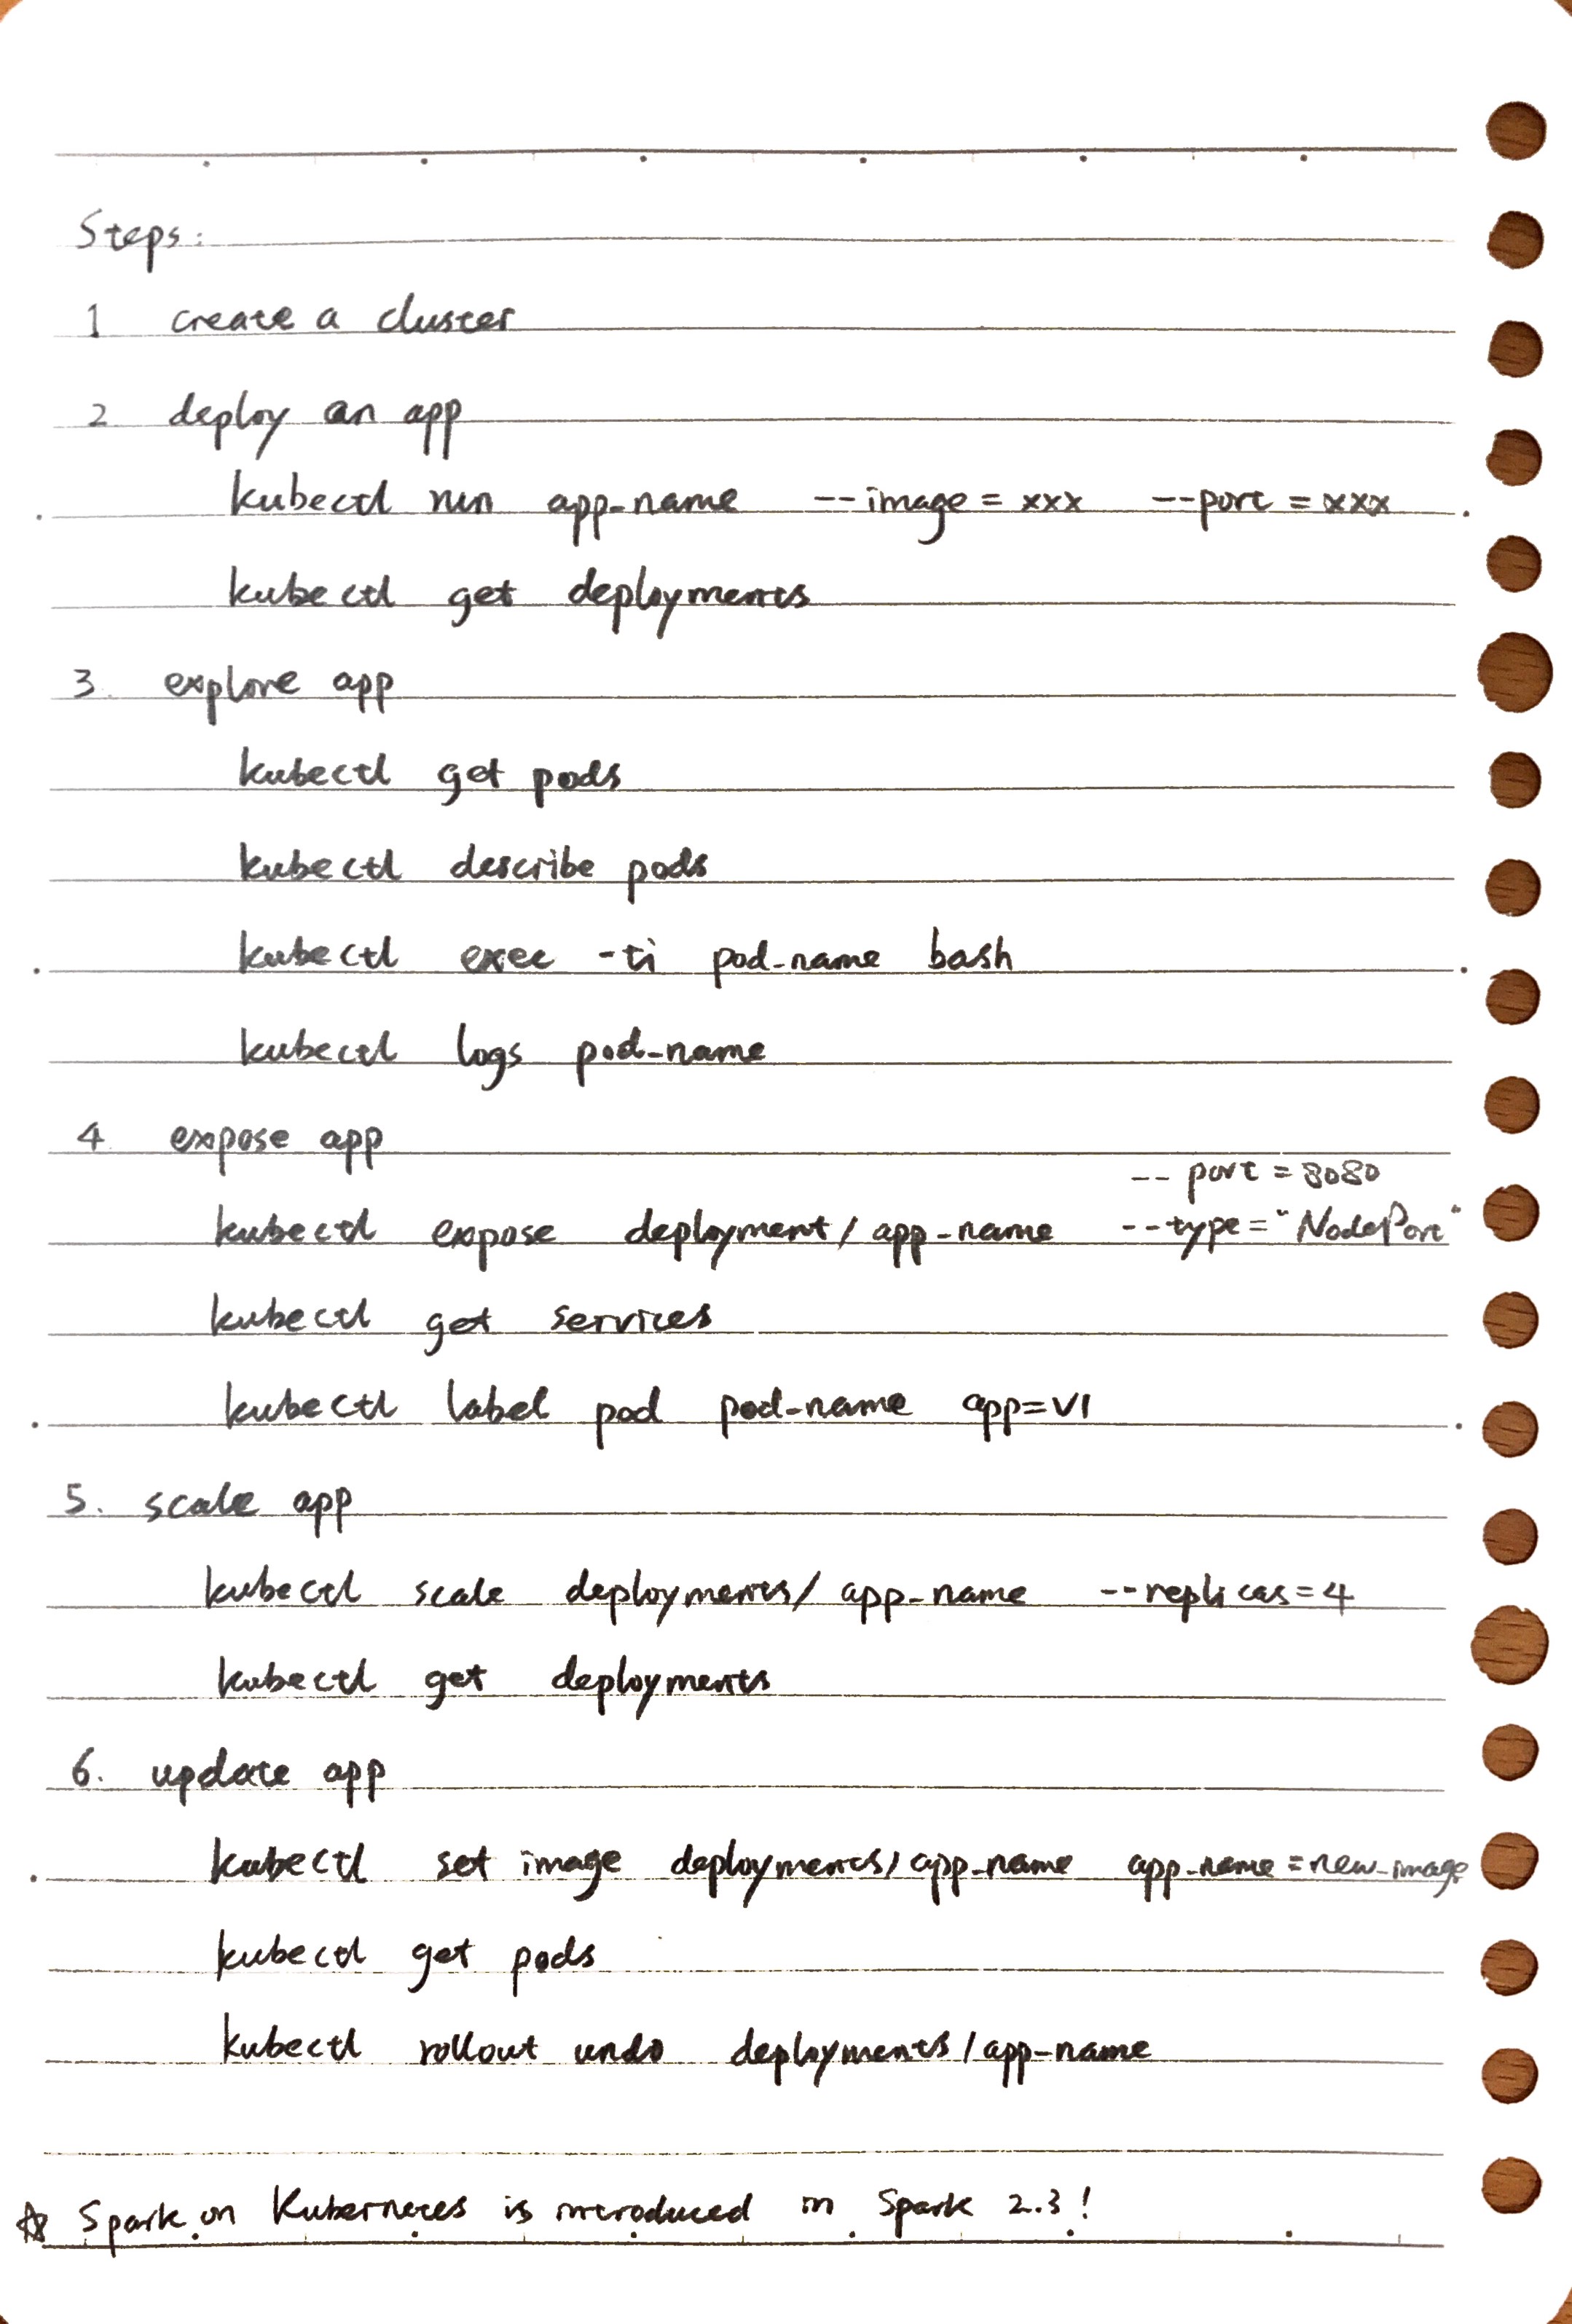 Steps:
1 create a cluster
2 deploy an app
kubectl run app-name --image=xxx --port=xxx
kubectl get deployments
3. explore app
kubectl get pods
kubectl describe pods
kubectl exec -ti pod-name bash
kubectl logs pod-name
4 expose app
--port=8080
kubectl expose deployment/app-name --type="NodePort"
kubectl get services
kubectl label pod pod-name app=v1
5. scale app
kubectl scale deployments/app-name --replicas=4
kubectl get deployments
6. update app
kubectl set image deployments/app-name app-name=new-image
kubectl get pods
kubectl rollout undo deployments/app-name
☆ Spark on Kubernetes is introduced in Spark 2.3!